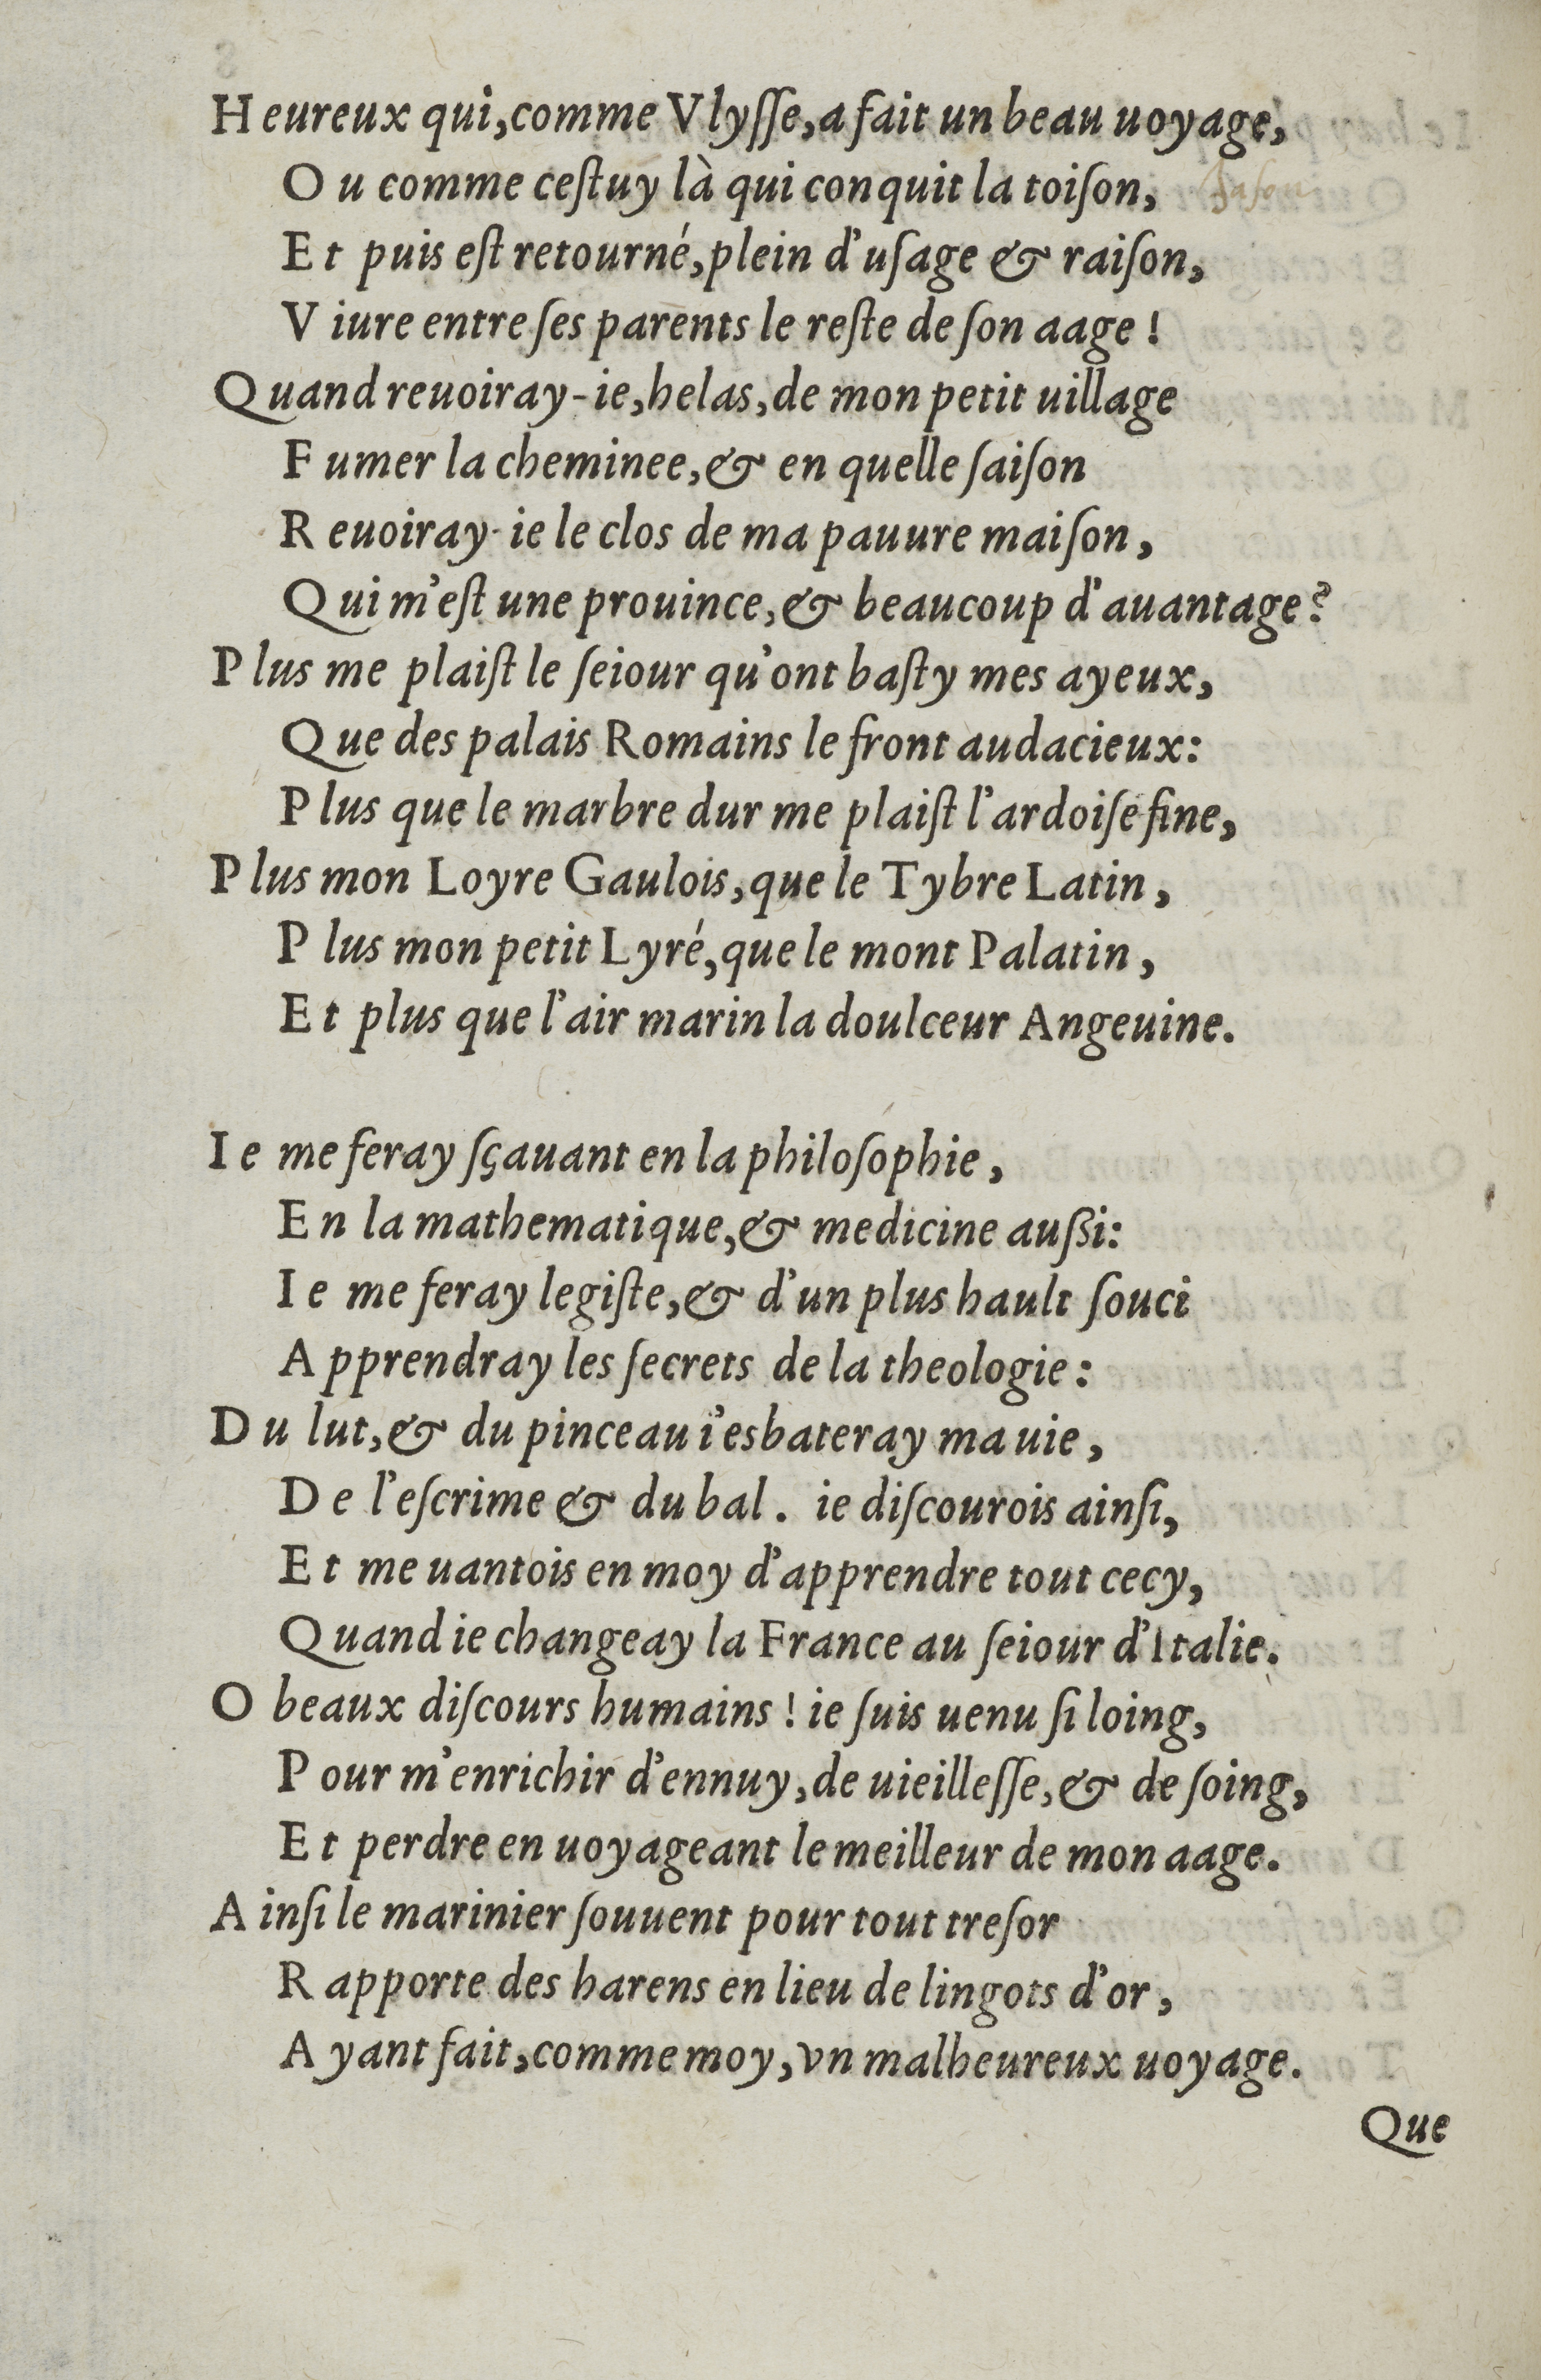 Heureux qui, comme Vlyſſe, a fait un beau uoyage,
Ou comme ceſtuy là qui conquit la toiſon, Jaſon
Et puis eſt retourné, plein d'uſage & raiſon,
Viure entre ſes parents le reſte de ſon aage!
Quand reuoiray-ie, helas, de mon petit uillage
Fumer la cheminee, & en quelle ſaiſon
Reuoiray-ie le clos de ma pauure maiſon,
Qui m'eſt une prouince, & beaucoup d'auantage?
Plus me plaiſt le ſeiour qu'ont baſty mes ayeux,
Que des palais Romains le front audacieux:
Plus que le marbre dur me plaiſt l'ardoiſe fine,
Plus mon Loyre Gaulois, que le Tybre Latin,
Plus mon petit Lyré, que le mont Palatin,
Et plus que l'air marin la doulceur Angeuine.
Ie me feray ſçauant en la philoſophie,
En la mathematique, & medicine auſsi:
Ie me feray legiſte, & d'un plus hault ſouci
Apprendray les ſecrets de la theologie:
Du lut, & du pinceau i'esbateray ma uie,
De l'eſcrime & du bal. ie diſcourois ainſi,
Et me uantois en moy d'apprendre tout cecy,
Quand ie changeay la France au ſeiour d'Italie.
O beaux diſcours humains! ie ſuis uenu ſi loing,
Pour m'enrichir d'ennuy, de uieilleſſe, & de ſoing,
Et perdre en uoyageant le meilleur de mon aage.
Ainſi le marinier ſouuent pour tout treſor
Rapporte des harens en lieu de lingots d'or,
Ayant fait, comme moy, vn malheureux uoyage.
Que